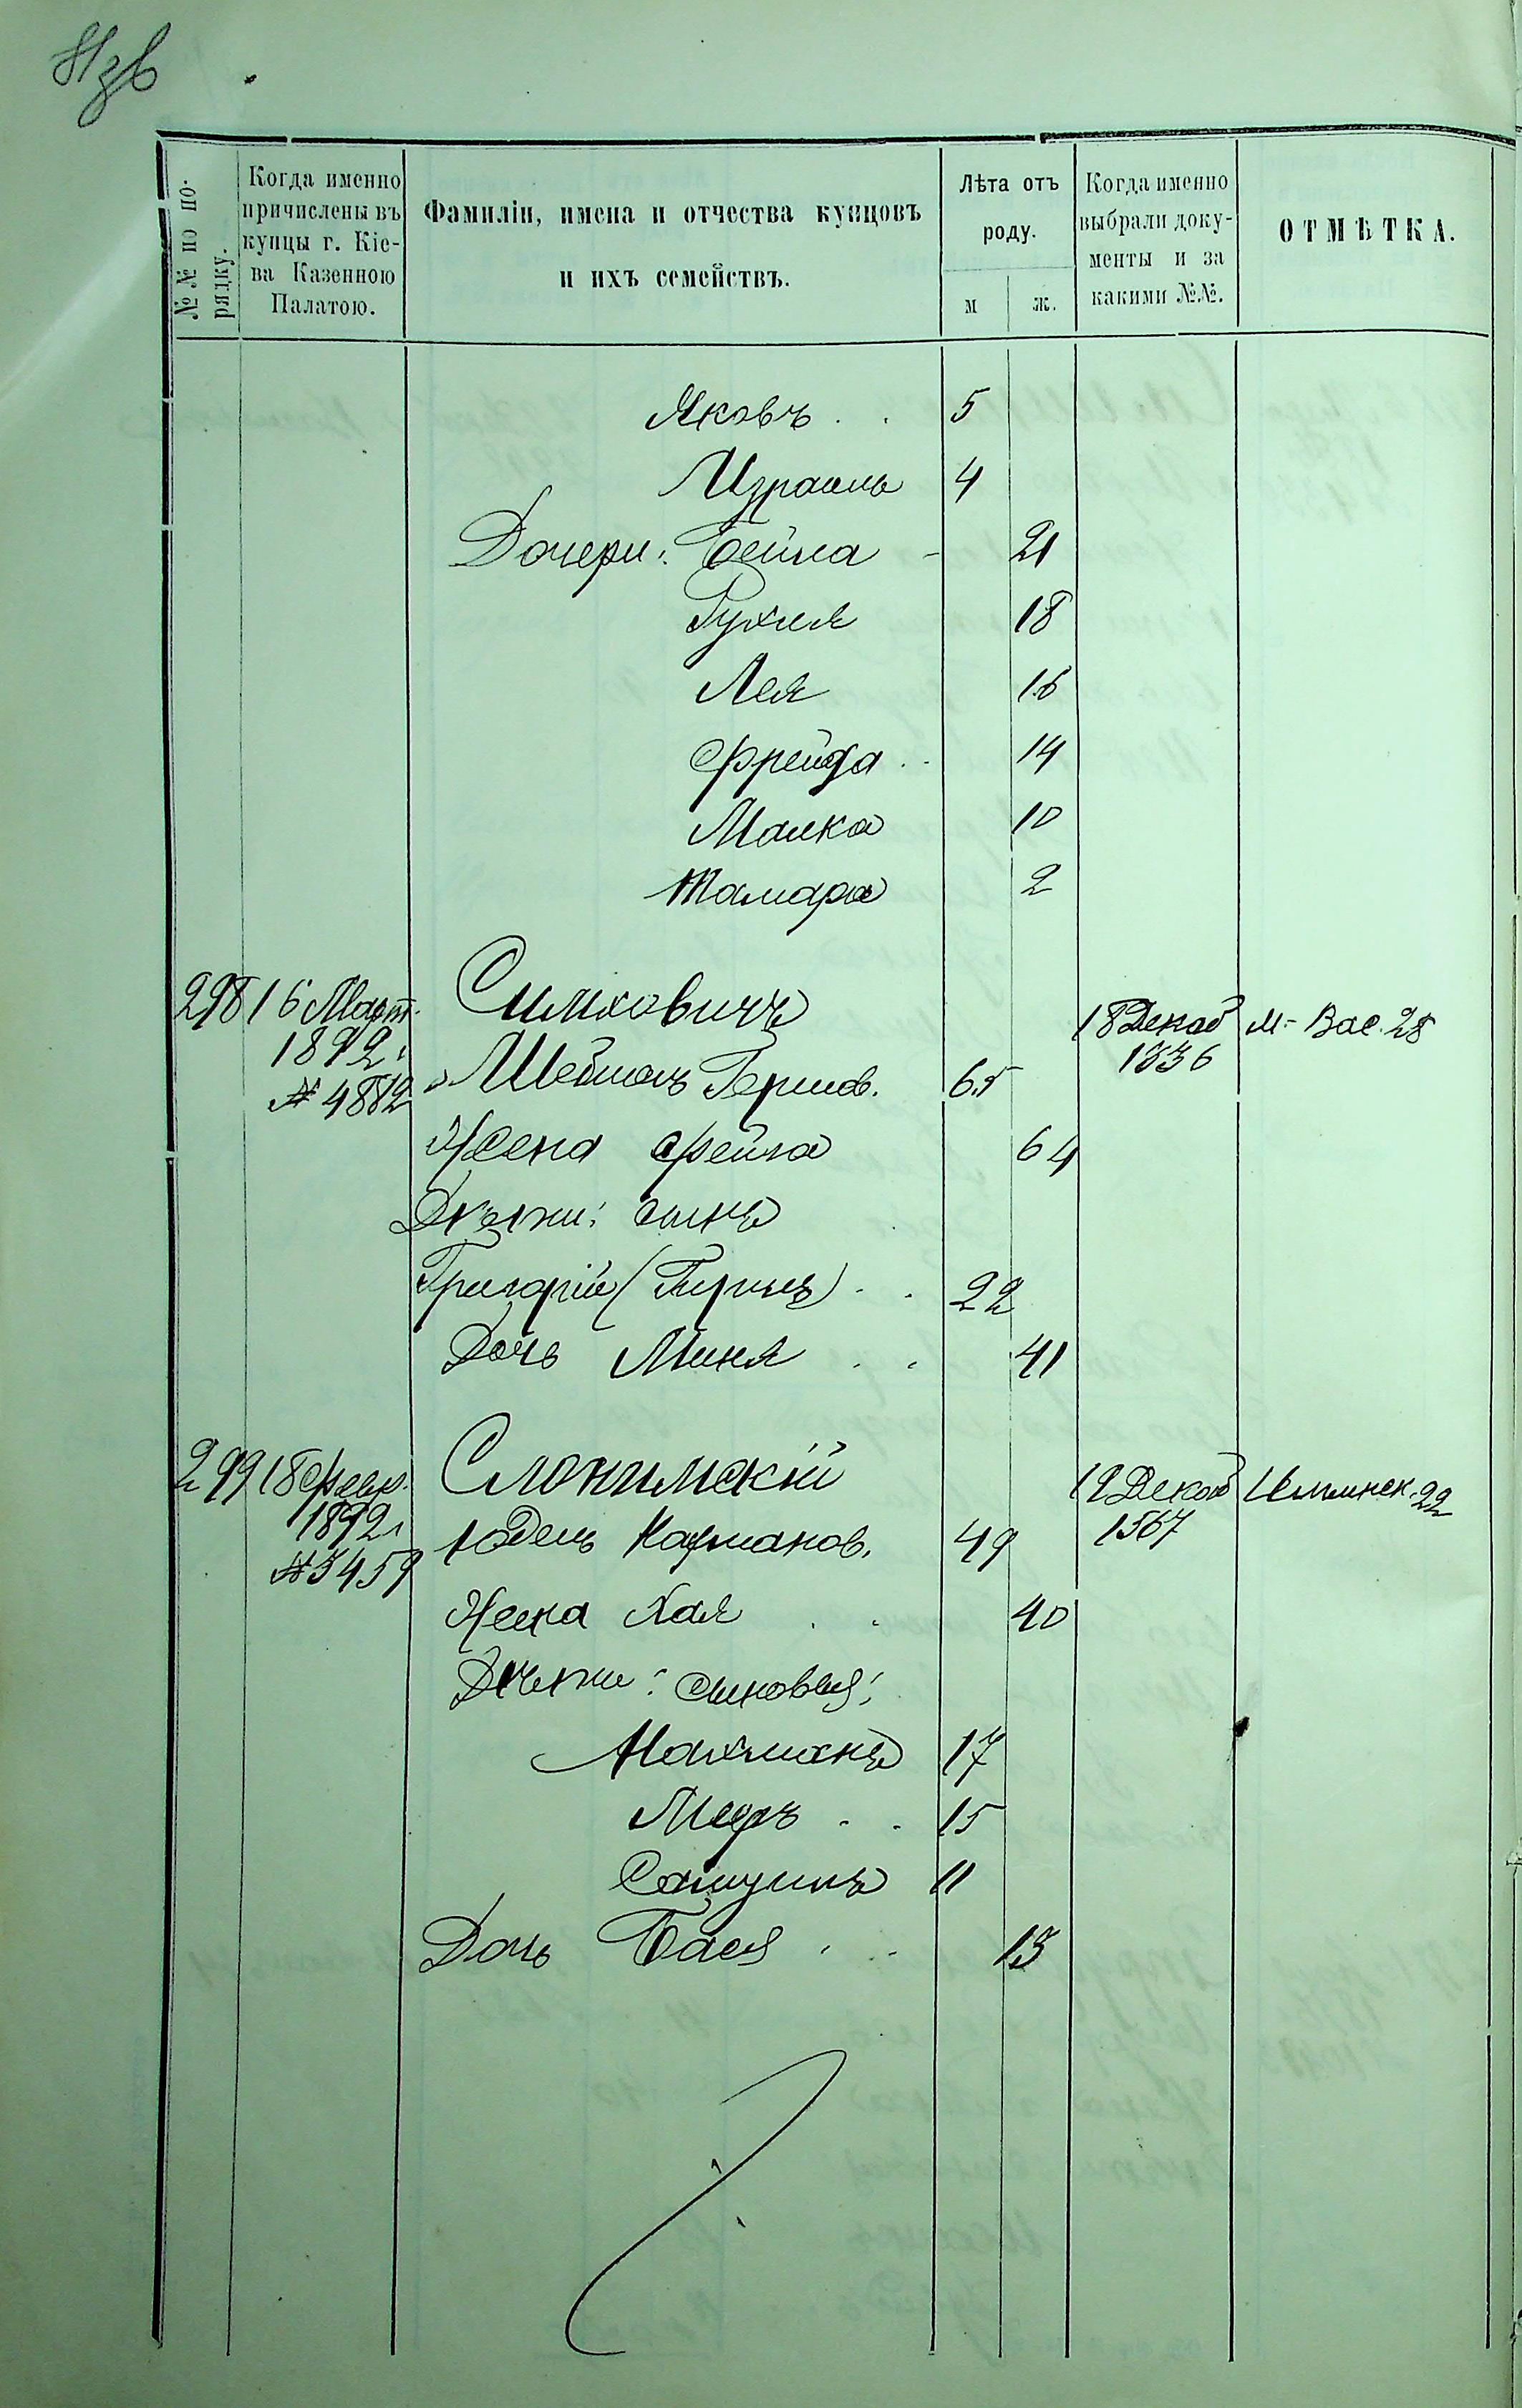 81 зв
№№ по порядку.
Когда именно причислены въ купцы г. Кіева Казенною Палатою.
Фамиліи, имена и отчества купцовъ и ихъ семействъ.
Лѣта отъ роду.
м
ж.
Когда именно выбрали документы и за какими №№.
ОТМѢТКА.
Яковъ . . 5
Израиль 4
Дочери: Бейла - 21
Рухля 18
Лея 16
Фрейда . . 14
Малка 10
Тамара 2
298 16 Март. Симховичъ 18 Декаб М.-Вас. 28
1892 г. Шеймонъ Гершов. 65 1336
№ 4882
Жена Фейга 64
Дѣти: сынъ
Григорій (Гиршъ) . . 22
Дочь Миня . . 41
299 18 Февр. Слонимскій 19 Декаб 22
1892 г Юдель 49 1567
№ 3459
Жена Хая . . 40
Дѣти: сыновья:
Нахманъ 17
Мееръ . . 15
Самуилъ 11
Дочь Бася . . 13